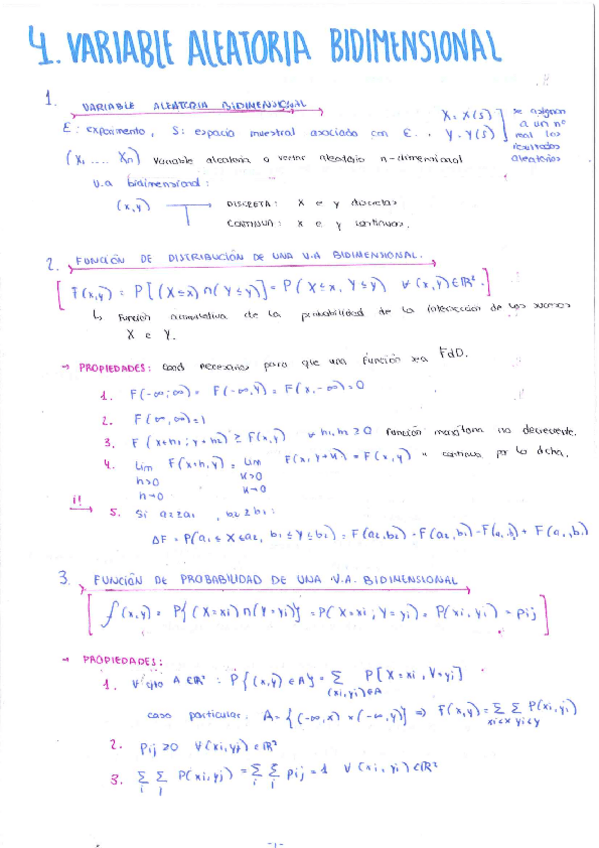 4. VARIABLE ALEATORIA BIDIMENSIONAL
1. VARIABLE ALEATORIA BIDIMENSIONAL
E: experimento, S: espacio muestral asociado con E. . X = X(S) Y = Y(S) ] se asignan a un nº real los resultados aleatorios
(X1 .... Xn) Variable aleatoria o vector aleatorio n-dimensional
V.a bidimensional:
(x,y) DISCRETA: X e y discretas
CONTINUA: x e y continuas.
2. FUNCIÓN DE DISTRIBUCIÓN DE UNA V.A BIDIMENSIONAL.
[ F(x,y) = P[(X≤x)∩(Y≤y)] = P(X≤x, Y≤y) ∀(x,y)∈ℝ². ]
↳ Función acumulativa de la probabilidad de la intersección de los sucesos
X e Y.
→ PROPIEDADES: Cond necesarias para que una función sea FdD.
1. F(-∞;∞) = F(-∞,Y) = F(x,-∞) = 0
2. F(∞,∞)=1
3. F(x+h1; y+h2) ≥ F(x,y) ∀ h1,h2 ≥ 0 Función monótona no decreciente.
4. lim F(x+h,y) = lim F(x,y+k) = F(x,y) " continua por la dcha.
h>0 k>0
h→0 k→0
¡! → 5. Si a2≥a1, b2≥b1:
ΔF = P(a1≤X≤a2, b1≤Y≤b2) = F(a2,b2) - F(a2,b1) - F(a1,b2) + F(a1,b1)
3. FUNCIÓN DE PROBABILIDAD DE UNA V.A. BIDIMENSIONAL
[ f(x,y) = P{(X=xi)∩(Y=yi)} = P(X=xi; Y=yi) = P(xi,yi) = pij ]
→ PROPIEDADES:
1. ∀ cjto A∈ℝ² : P{(x,y)∈A} = Σ P[X=xi, Y=yi]
(xi,yi)∈A
caso particular: A={(-∞,x)×(-∞,y)} ⇒ F(x,y) = Σ Σ P(xi,yi)
xi<x yi<y
2. pij ≥0 ∀(xi,yj)∈ℝ²
3. Σ Σ P(xi,yj) = Σ Σ pij = 1 ∀(xi,yi)∈ℝ²
i j i j
-1-